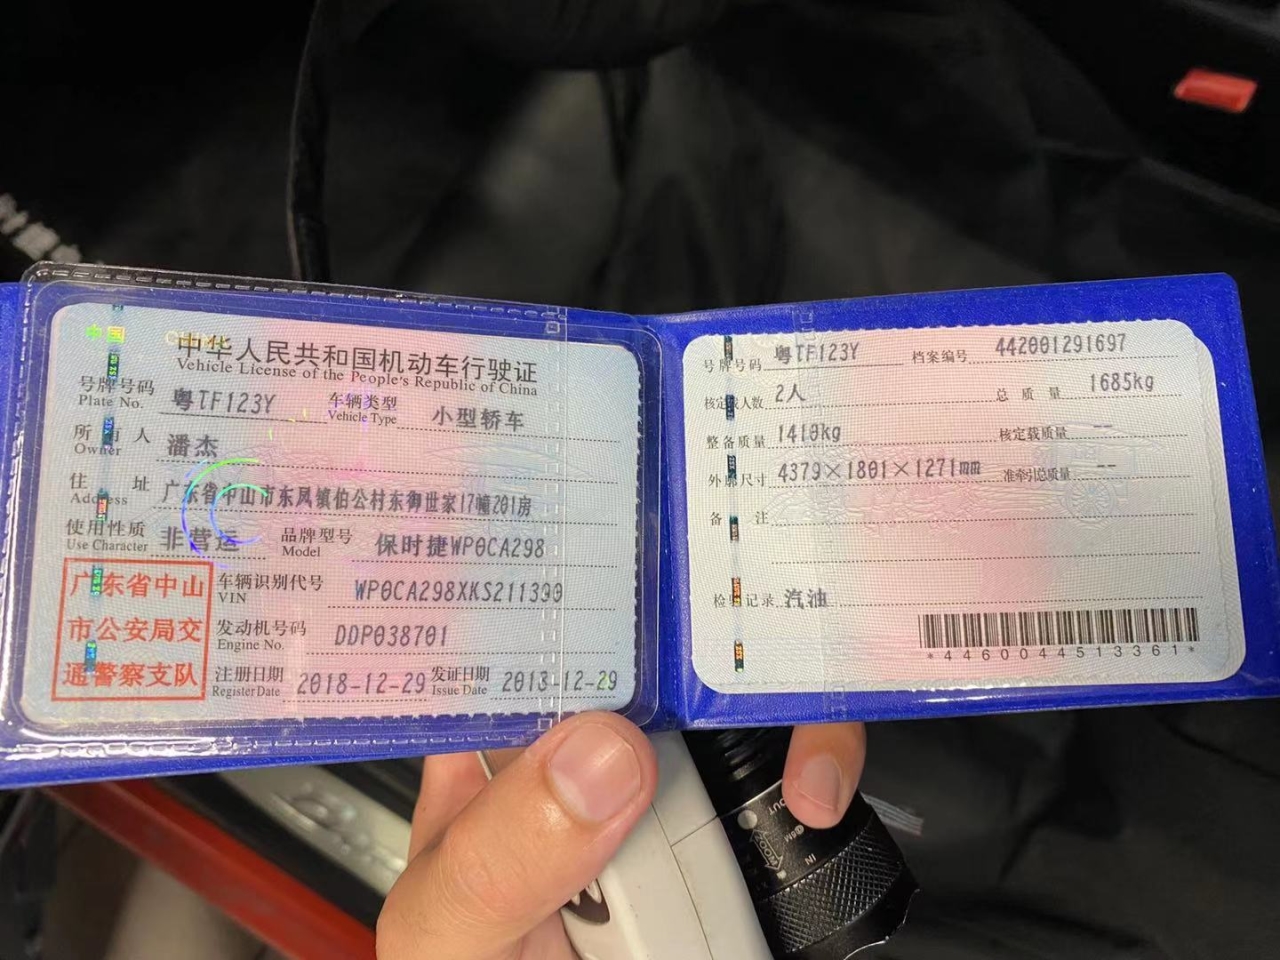 中华人民共和国机动车行驶证
Vehicle License of the People's Republic of China
号牌号码 粤TF123Y 车辆类型 小型轿车
Plate No. Vehicle Type
所有人 潘杰
Owner
住址 广东省中山市东凤镇伯公村东御世家17幢201房
Address
使用性质 非营运 品牌型号 保时捷WP0CA298
Use Character Model
广东省中山
市公安局交
通警察支队
车辆识别代号 WP0CA298XKS211399
VIN
发动机号码 DDP038701
Engine No.
注册日期 2018-12-29 发证日期 2018-12-29
Register Date Issue Date
号牌号码 粤TF123Y 档案编号 442001291697
核定载人数 2人 总质量 1685kg
整备质量 1410kg 核定载质量 --
外廓尺寸 4379×1801×1271mm 准牵引总质量 --
备注
检验记录 汽油
*4460044513361*
OUT
IN